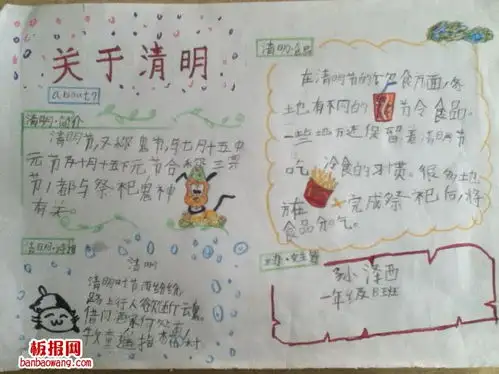 关于清明
about
清明·简介
清明节,又称鬼节,与七月十五中
元节及十月十五下元节合称三冥
节,都与祭祀鬼神
有关。
清明·诗词
清明
清明时节雨纷纷,
路上行人欲断魂。
借问酒家何处有
牧童遥指杏花村
清明·食品
在清明节的饮食方面,各
土也有不同的节令食品。
一些地方还保留着清明节
吃冷食的习惯。很多地
方在完成祭祀后,将
食品分吃。
孙泽西
一年级8班
板报网
banbaowang.com